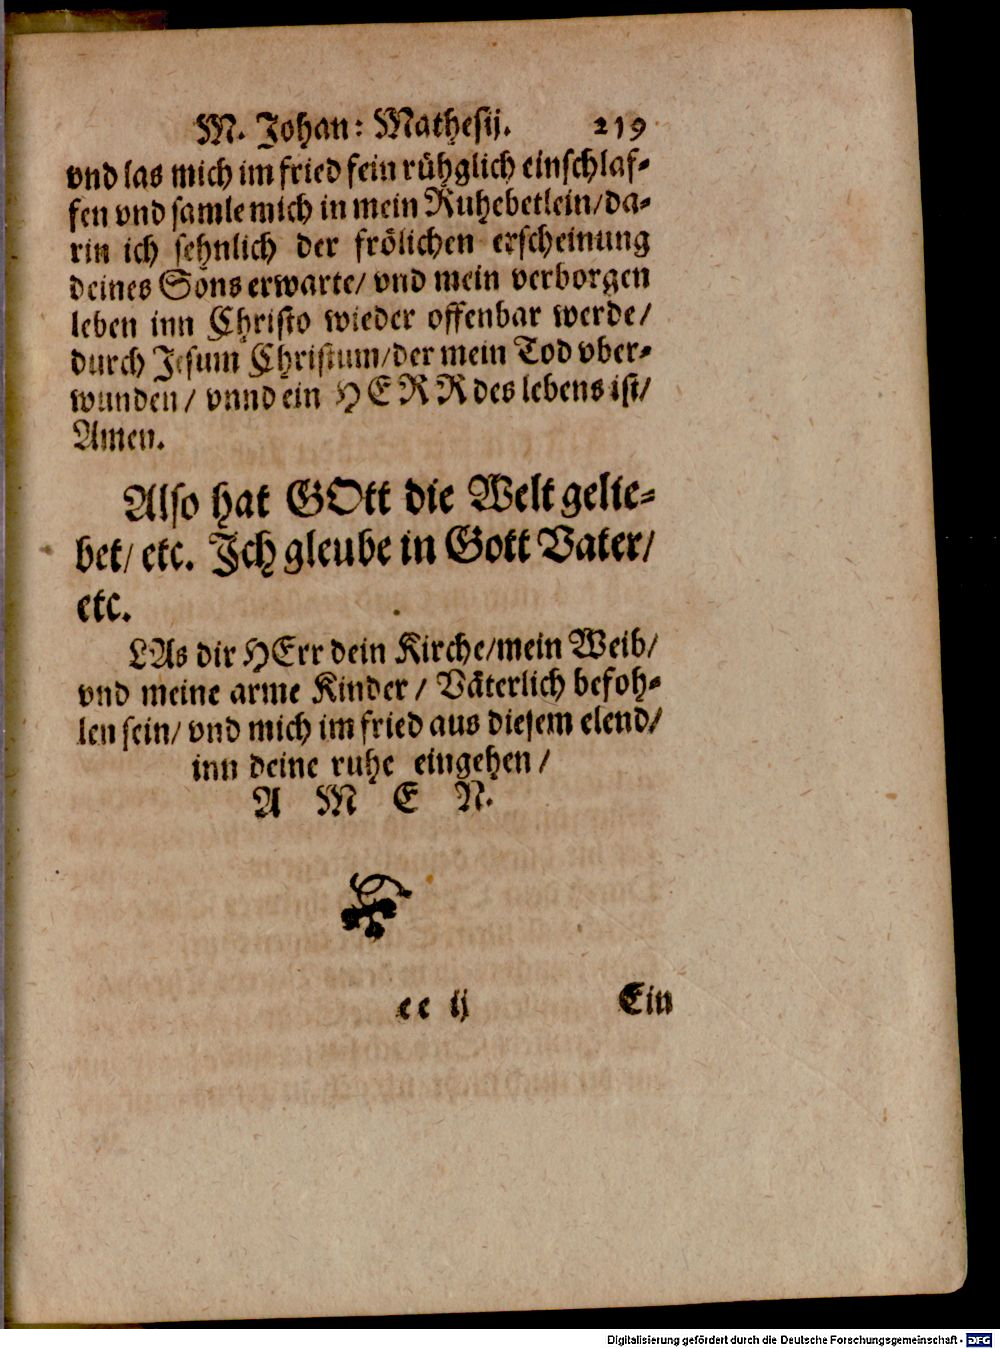 M. Johan: Mathesij. 219
vnd las mich im fried fein rühglich einschlaf-
fen vnd samle mich in mein Ruhebetlein/da-
rin ich sehnlich der frölichen erscheinung
deines Sons erwarte/ vnd mein verborgen
leben inn Christo wieder offenbar werde/
durch Jesum Christum/der mein Tod vber-
wunden/ vnnd ein HERR des lebens ist/
Amen.
Also hat GOtt die Welt gelie-
bet/ etc. Ich gleube in Gott Vater/
etc.
LAs dir HErr dein Kirche/mein Weib/
vnd meine arme Kinder/ Väterlich befoh-
len sein/ vnd mich im fried aus diesem elend/
inn deine ruhe eingehen/
A M E N.
ee ij Ein
Digitalisierung gefördert durch die Deutsche Forschungsgemeinschaft - DFG